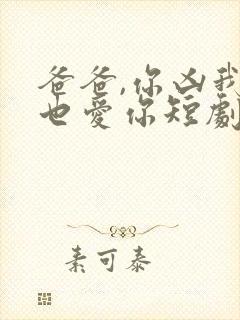 爸爸,你凶我
也愛你短劇
素可泰